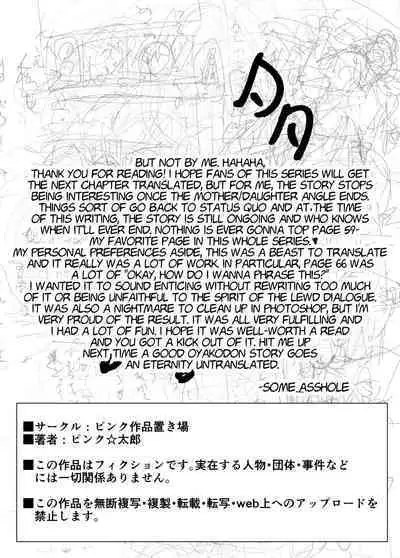 BUT NOT BY ME. HAHAHA,
THANK YOU FOR READING! I HOPE FANS OF THIS SERIES WILL GET
THE NEXT CHAPTER TRANSLATED, BUT FOR ME, THE STORY STOPS
BEING INTERESTING ONCE THE MOTHER/DAUGHTER ANGLE ENDS.
THINGS SORT OF GO BACK TO STATUS QUO AND AT THE TIME
OF THIS WRITING, THE STORY IS STILL ONGOING AND WHO KNOWS
WHEN IT'LL EVER END. NOTHING IS EVER GONNA TOP PAGE 59-
MY FAVORITE PAGE IN THIS WHOLE SERIES.♥
MY PERSONAL PREFERENCES ASIDE, THIS WAS A BEAST TO TRANSLATE
AND IT REALLY WAS A LOT OF WORK. IN PARTICULAR, PAGE 66 WAS
A LOT OF "OKAY, HOW DO I WANNA PHRASE THIS?"
I WANTED IT TO SOUND ENTICING WITHOUT REWRITING TOO MUCH
OF IT OR BEING UNFAITHFUL TO THE SPIRIT OF THE LEWD DIALOGUE.
IT WAS ALSO A NIGHTMARE TO CLEAN UP IN PHOTOSHOP, BUT I'M
VERY PROUD OF THE RESULT. IT WAS ALL VERY FULFILLING AND
I HAD A LOT OF FUN. I HOPE IT WAS WELL-WORTH A READ
AND YOU GOT A KICK OUT OF IT. HIT ME UP
NEXT TIME A GOOD OYAKODON STORY GOES
AN ETERNITY UNTRANSLATED.
-SOME_ASSHOLE
■サークル：ピンク作品置き場
■著者：ピンク☆太郎
■この作品はフィクションです。実在する人物・団体・事件など
には一切関係ありません。
■この作品を無断複写・複製・転載・転写・web上へのアップロードを
禁止します。